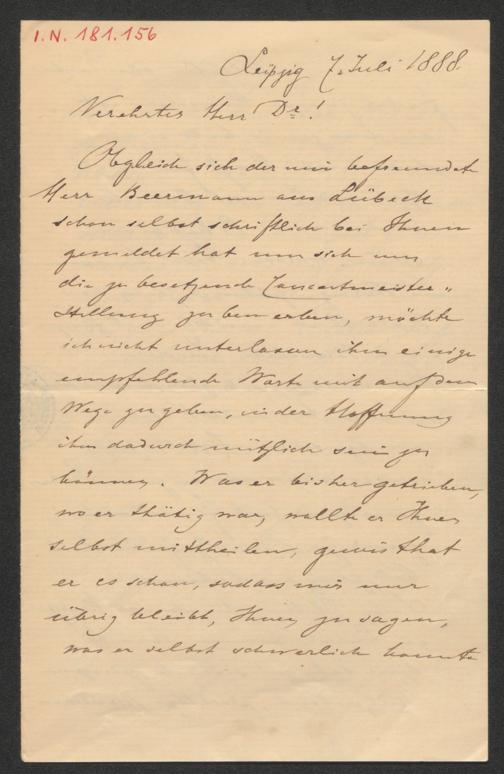 I.N. 181.156
Leipzig 7. Juli 1888.
Verehrter Herr Dr!
Obgleich sich der mir befreundete
Herr Beermann aus Lübeck
schon selbst schriftlich bei Ihnen
gemeldet hat um sich um
die zu besetzende Concertmeister-
Stellung zu bewerben, möchte
ich nicht unterlassen ihm einige
empfehlende Worte mit auf den
Weg zu geben, in der Hoffnung
ihm dadurch nützlich sein zu
können. Was er bisher getrieben,
wo er thätig war, wollte er Ihnen
selbst mittheilen, gewis that
er es schon, sodass mir nur
übrig bleibt, Ihnen zu sagen,
was er selbst schwerlich konnte